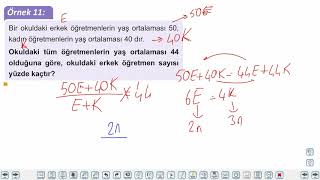 Örnek 11:
E
→ 50E
Bir okuldaki erkek öğretmenlerin yaş ortalaması 50,
kadın öğretmenlerin yaş ortalaması 40 dır.
→ 40K
K
Okuldaki tüm öğretmenlerin yaş ortalaması 44
olduğuna göre, okuldaki erkek öğretmen sayısı
yüzde kaçtır?
50E+40K = 44E+44K
50E+40K
E+K
44
6E = 4K
2n
3n
2n